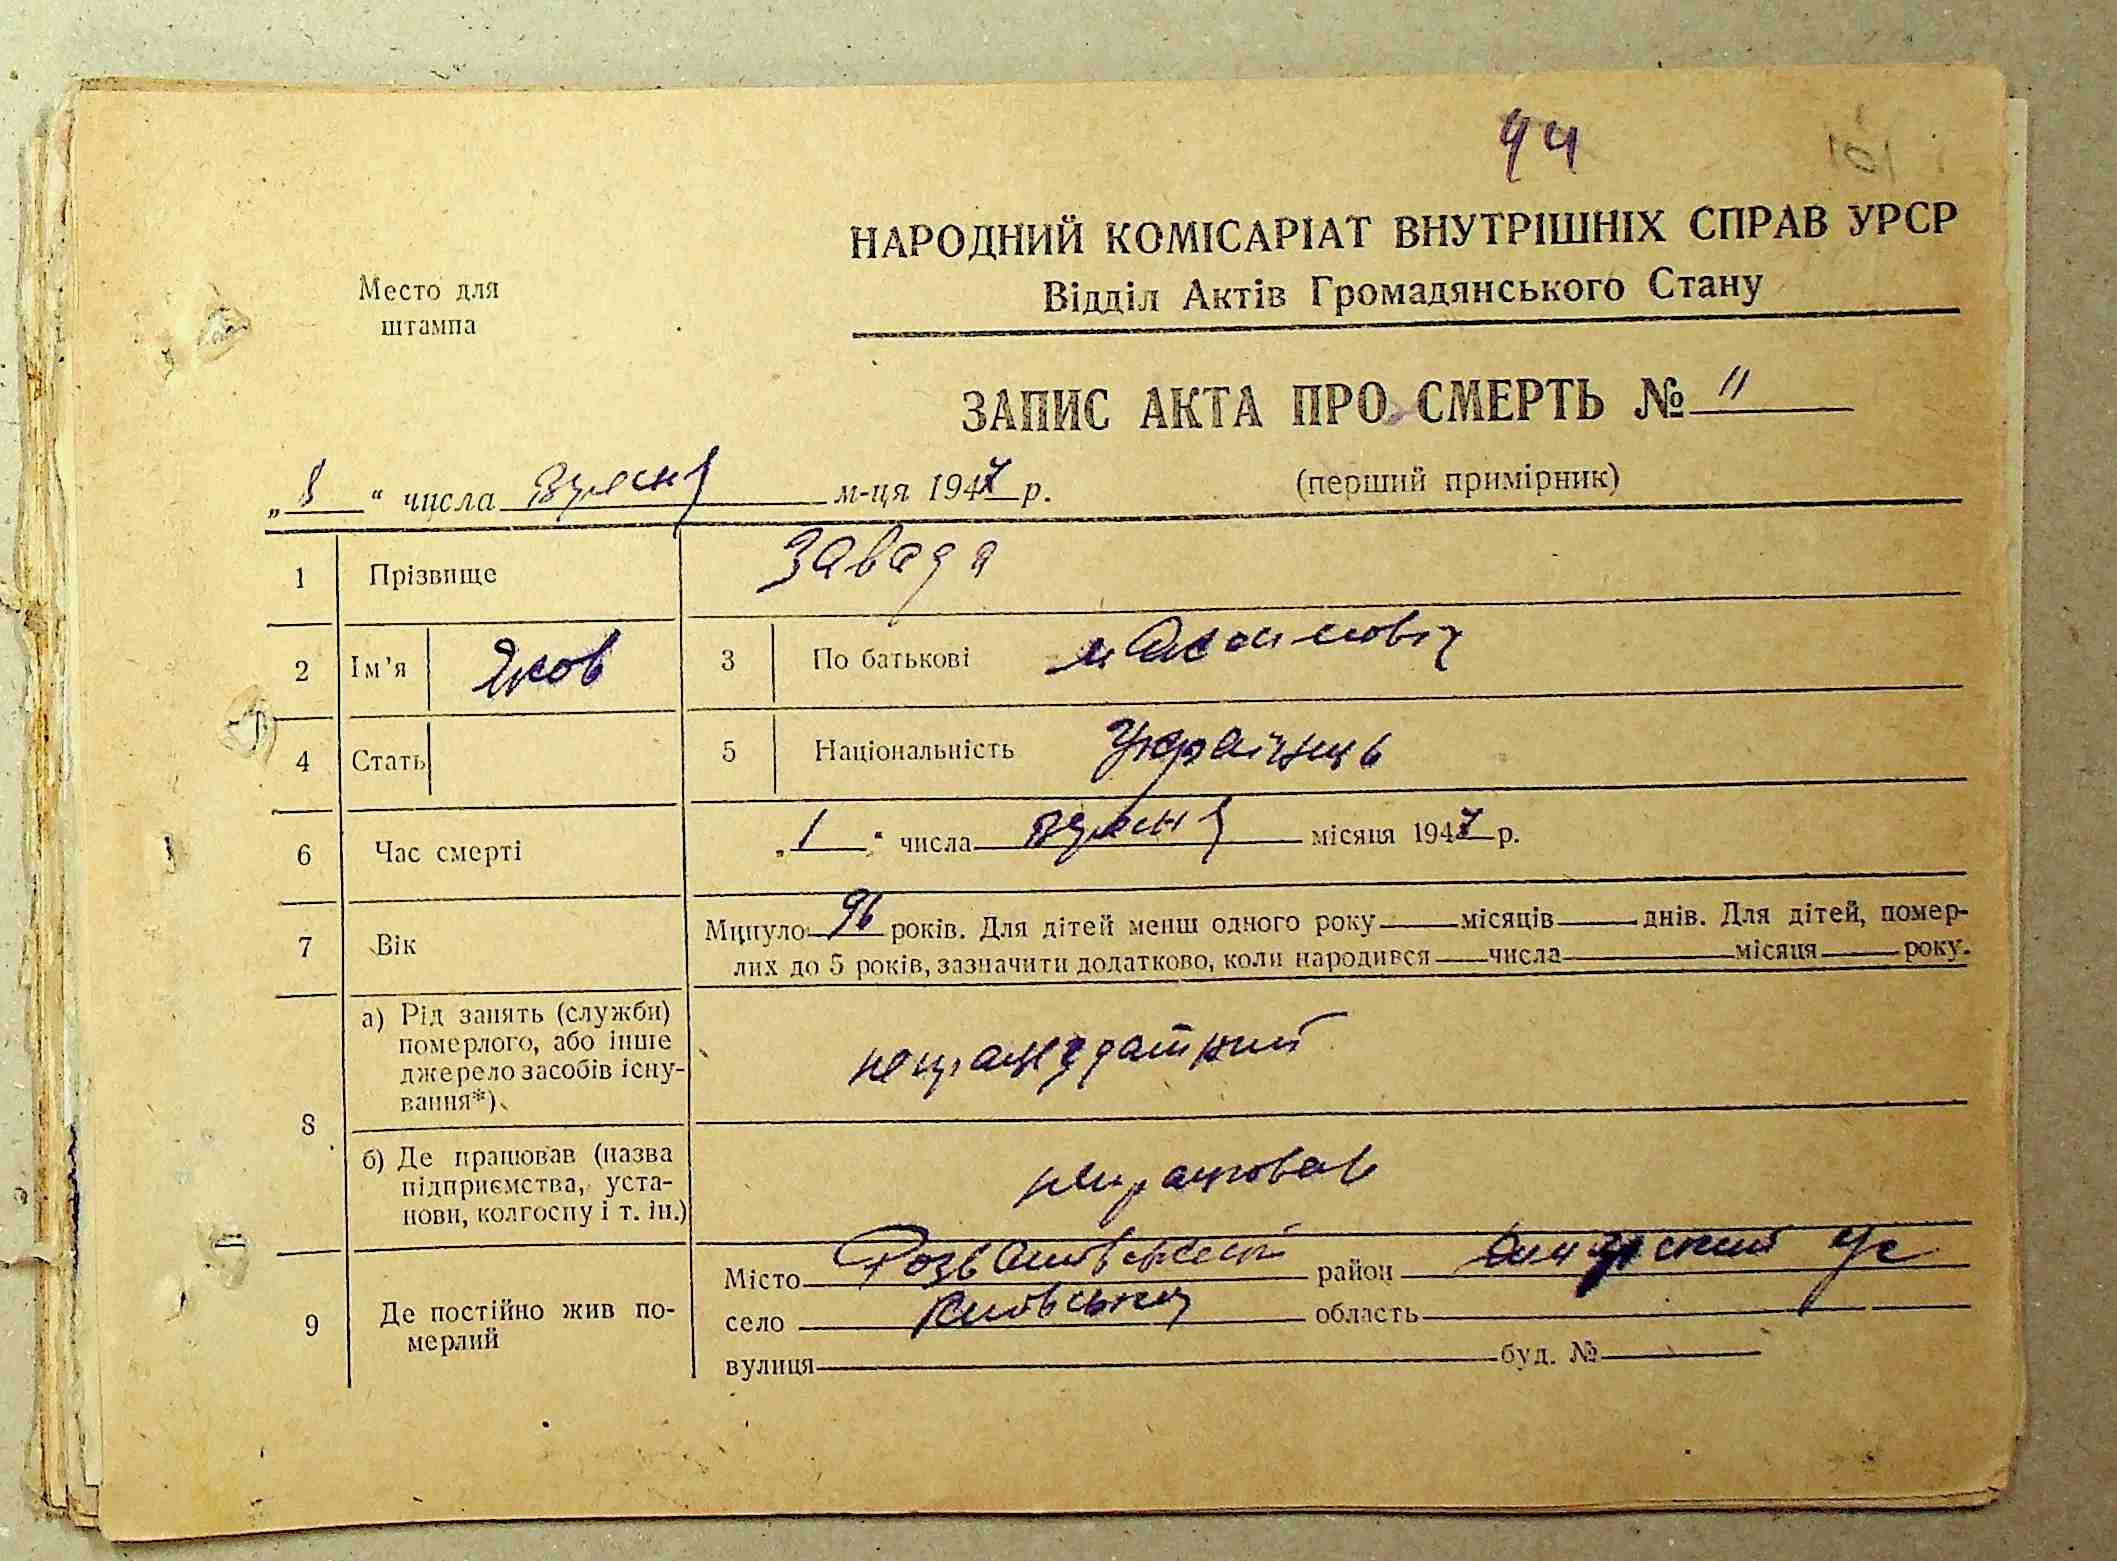 94
101
НАРОДНИЙ КОМІСАРІАТ ВНУТРІШНІХ СПРАВ УРСР
Відділ Актів Громадянського Стану
Место для
штампа
ЗАПИС АКТА ПРО СМЕРТЬ № 11
„ “ числа вресня м-ця 1947 р. (перший примірник)
1 Прізвище Завада
2 Ім'я Яков 3 По батькові максимовіч
4 Стать 5 Національність Українць
6 Час смерті „1“ числа вресня місяця 1947 р.
7 Вік Минуло 96 років. Для дітей менш одного року місяців днів. Для дітей, помер-
лих до 5 років, зазначити додатково, коли народився числа місяця року.
8 а) Рід занять (служби)
померлого, або інше
джерело засобів існу-
вання*)
непрацездатний
б) Де працював (назва
підприємства, уста-
нови, колгоспу і т. ін.)
непрацював
9 Де постійно жив по-
мерлий
Місто район
село область
вулиця буд. №